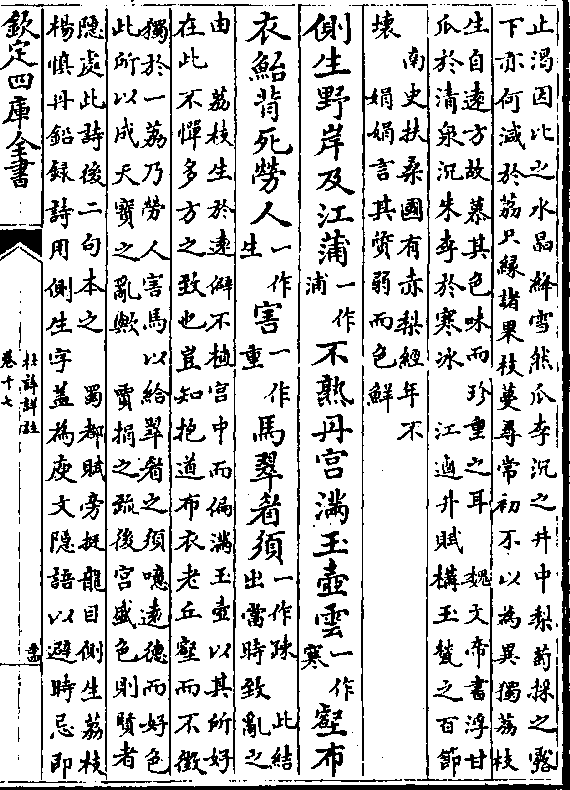 止渴因比之水晶絳雪然瓜李沉之井中梨蔔採之露
下亦何減於荔只緣諸果枝蔓尋常初不以為異獨荔枝
生自遠方故慕其色味而珍重之耳　魏文帝書浮甘
瓜於清泉沉朱李於寒冰　江逌井賦構玉甃之百節
南史扶桑國有赤梨經年不
壞　娟娟言其質弱而色鮮
側生野岸及江蒲一作浦不熟丹宮滿玉壺雲一作寒壑布
衣鮐背死勞人一作生害一作重馬翠眉須一作疎　此結出當時致亂之
由　荔枝生於遠僻不植宮中而偏滿玉壺以其所好
在此不憚多方之致也豈知抱道布衣老丘壑而不徵
獨於一荔乃勞人害馬以給翠眉之須噫遠德而好色
此所以成天寶之亂歟　賈捐之疏後宮盛色則賢者
隱處此詩後二句本之　蜀都賦旁挺龍目側生荔枝
楊慎丹鉛録詩用側生字蓋為廋文隱語以避時忌即
欽定四庫全書
杜詩詳註
卷十七